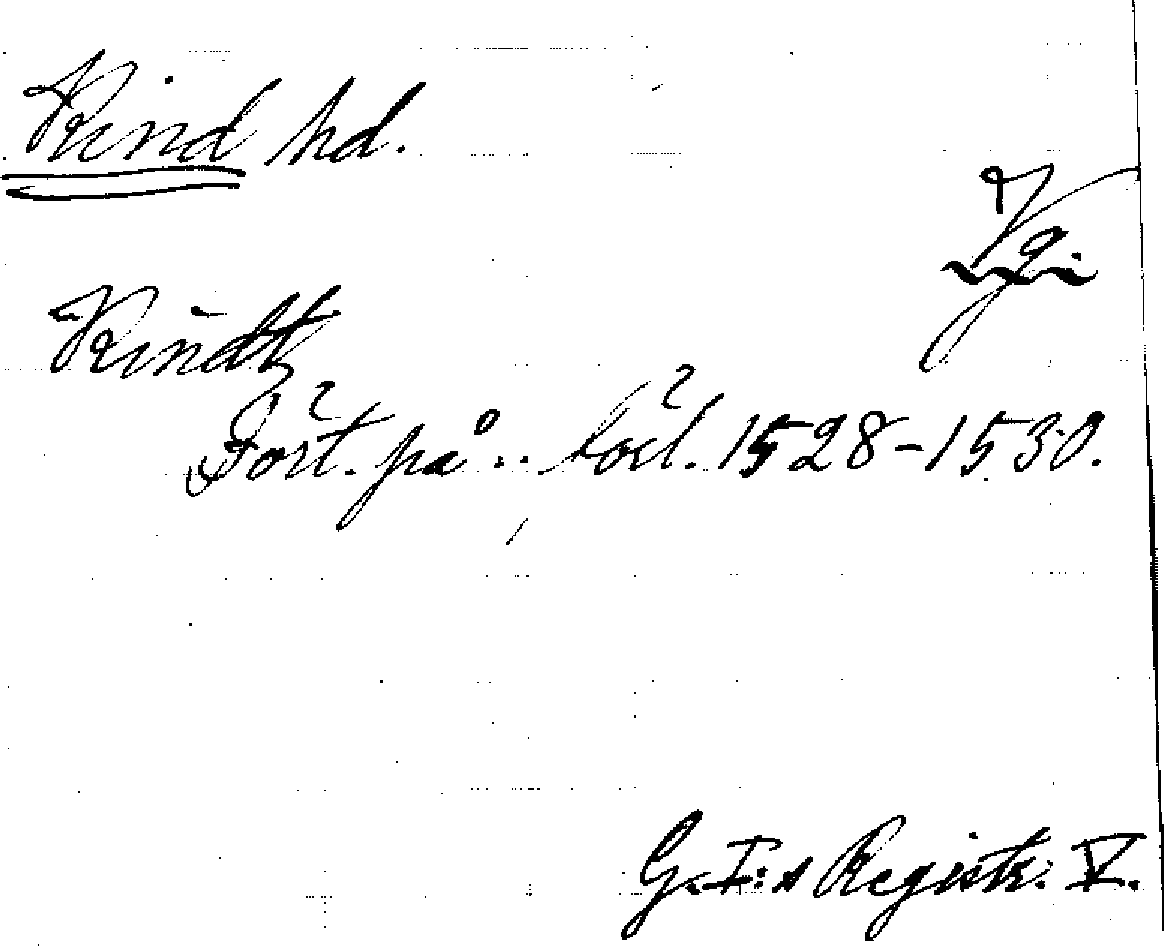 Kind hd.
Vg.
Kindt
Fört. på .. förl. 1528-1530.
G. I:s Registr. V.